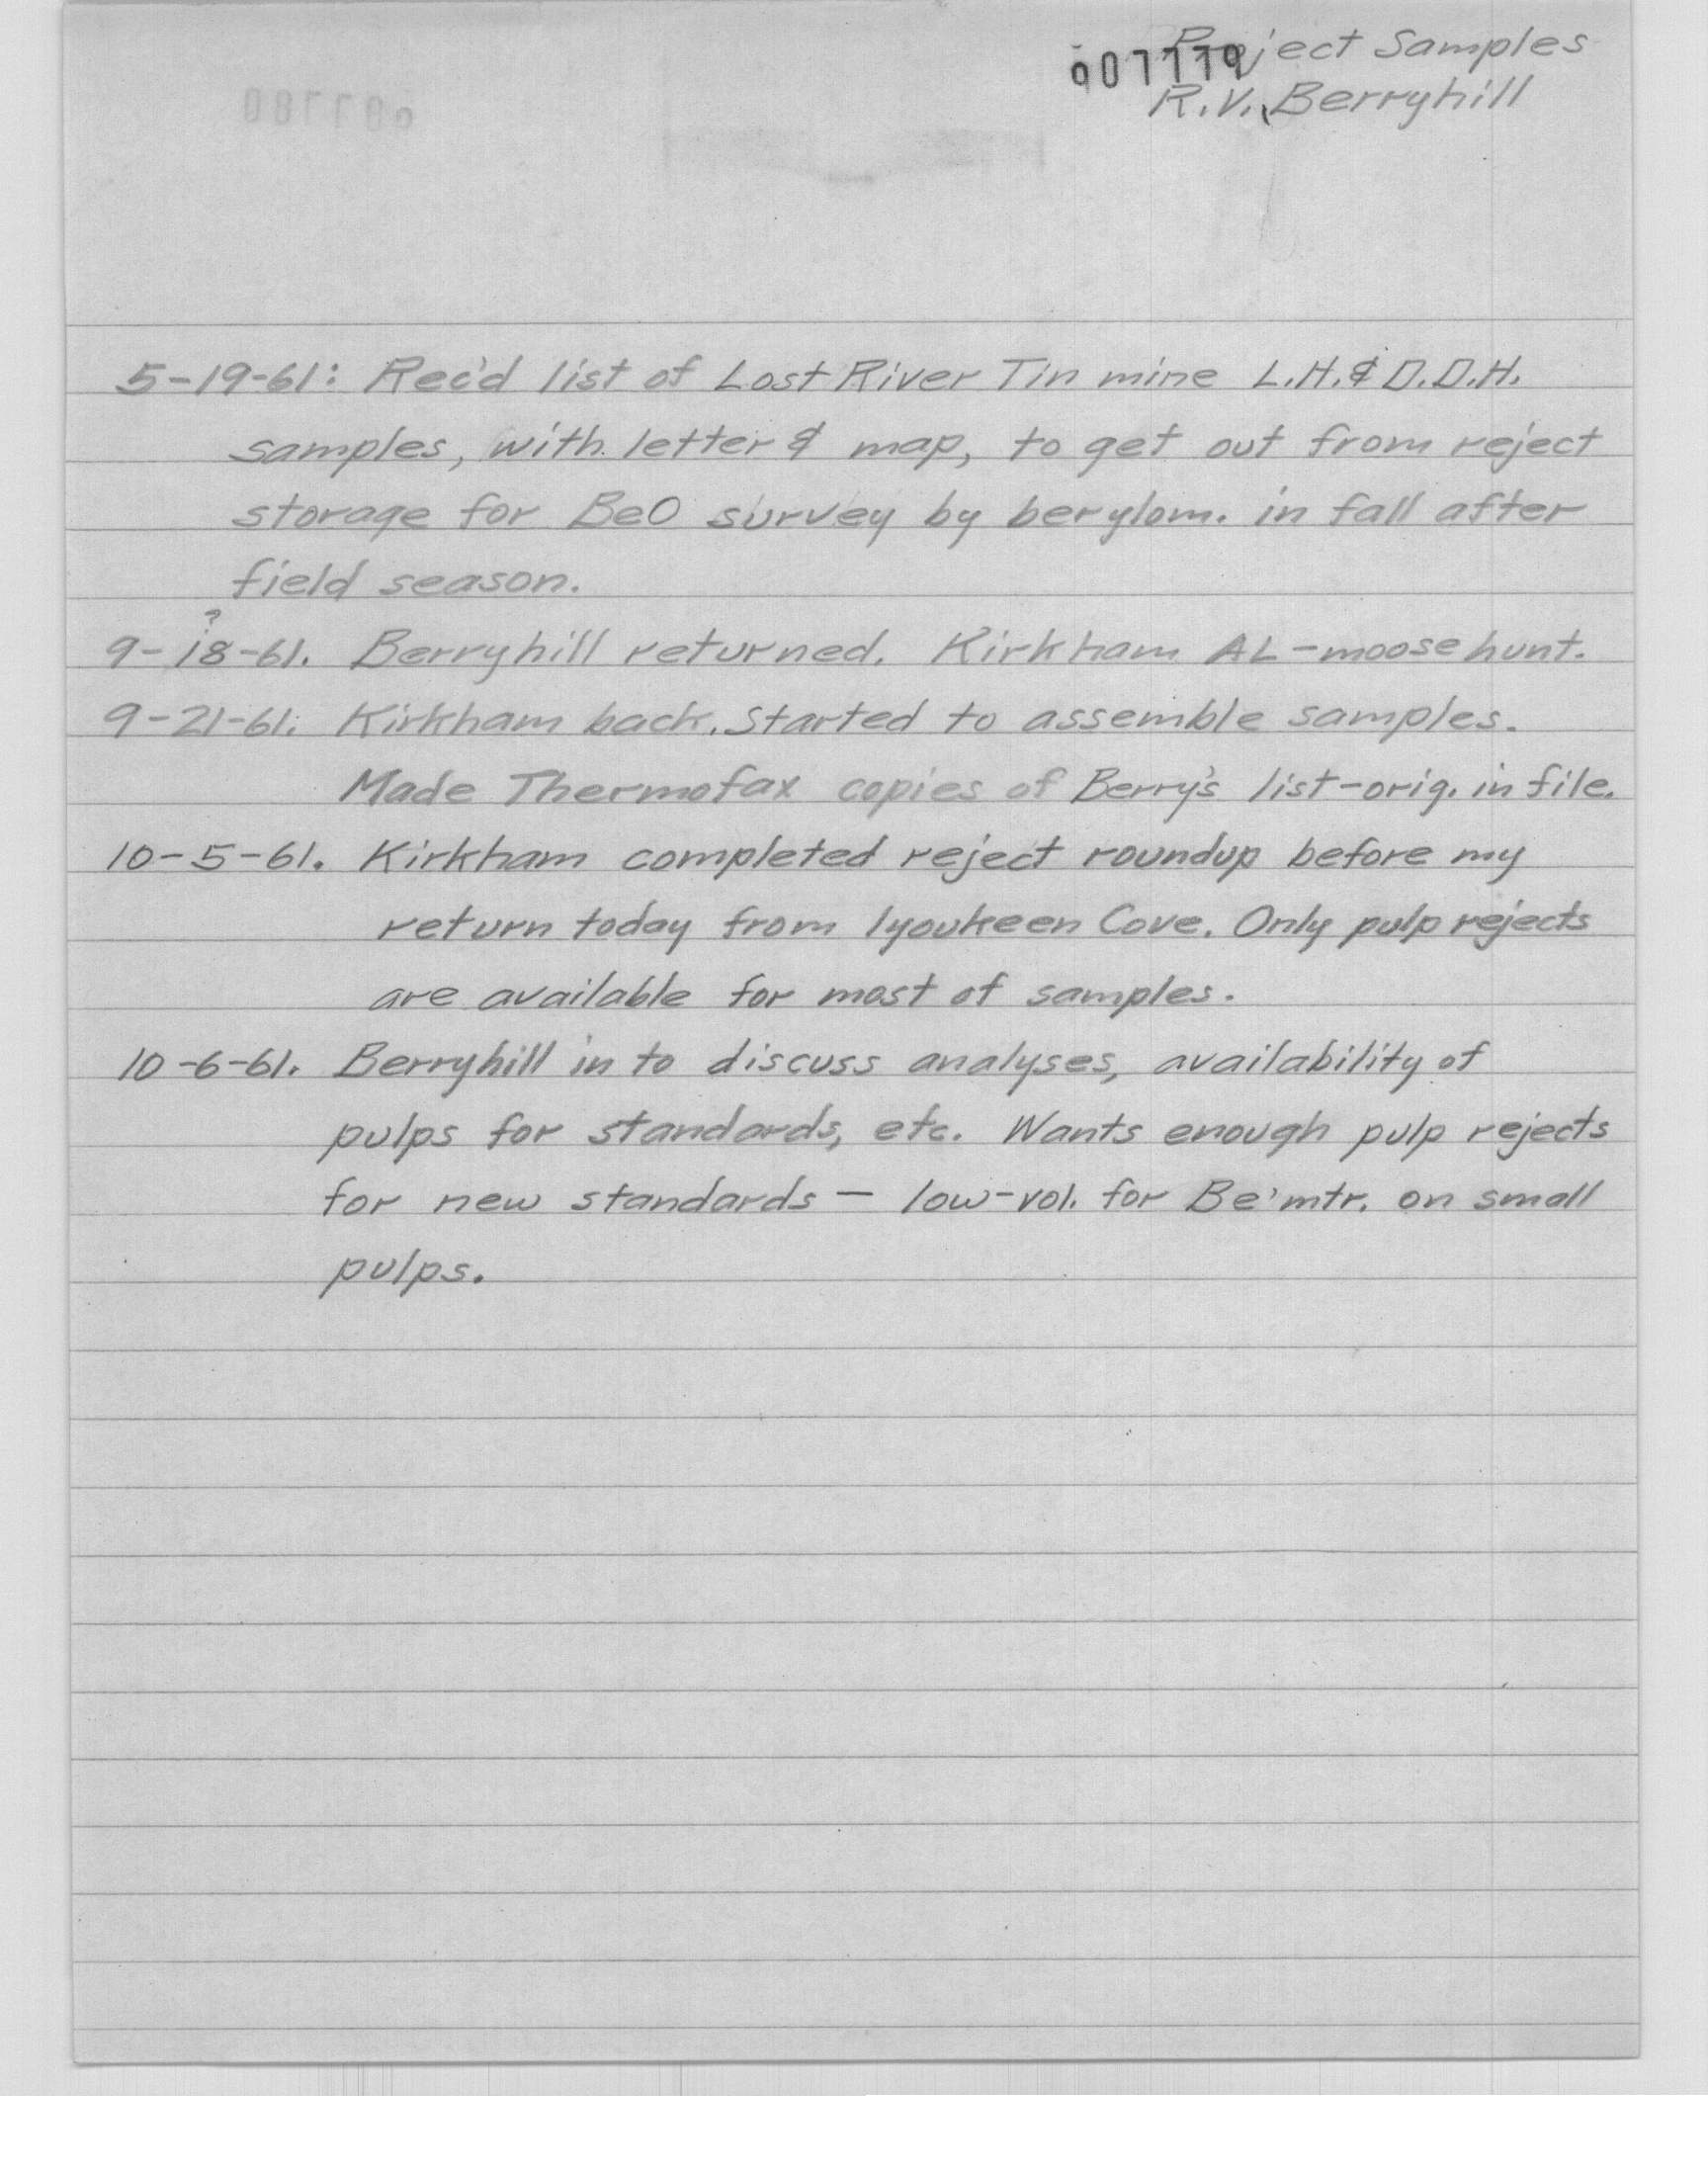 Project Samples
007779
R.V. Berryhill
5-19-61: Rec'd list of Lost River Tin mine L.H. & D.D.H.
samples, with letter & map, to get out from reject
storage for BeO survey by berylom. in fall after
field season.
?
9-18-61. Berryhill returned. Kirkham AL-moose hunt.
9-21-61. Kirkham back. Started to assemble samples.
Made Thermofax copies of Berry's list-orig. in file.
10-5-61. Kirkham completed reject roundup before my
return today from Iyoukeen Cove. Only pulp rejects
are available for most of samples.
10-6-61. Berryhill in to discuss analyses, availability of
pulps for standards, etc. Wants enough pulp rejects
for new standards — low-vol. for Be'mtr. on small
pulps.